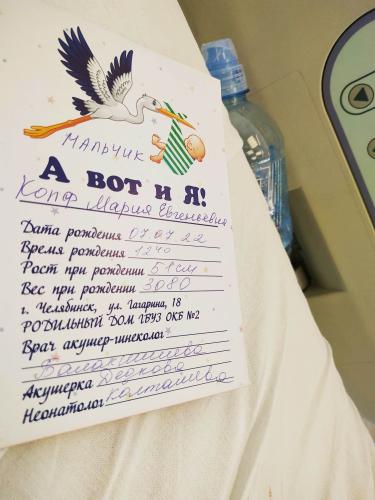 МАЛЬЧИК
А ВОТ И Я!
Копф Мария Евгеньевна
Дата рождения 07.07.22
Время рождения 1240
Рост при рождении 51см
Вес при рождении 3080
г. Челябинск, ул. Гагарина, 18
РОДИЛЬНЫЙ ДОМ ГБУЗ ОКБ №2
Врач акушер-гинеколог
Акушерка Дедкова
Неонатолог Колташева